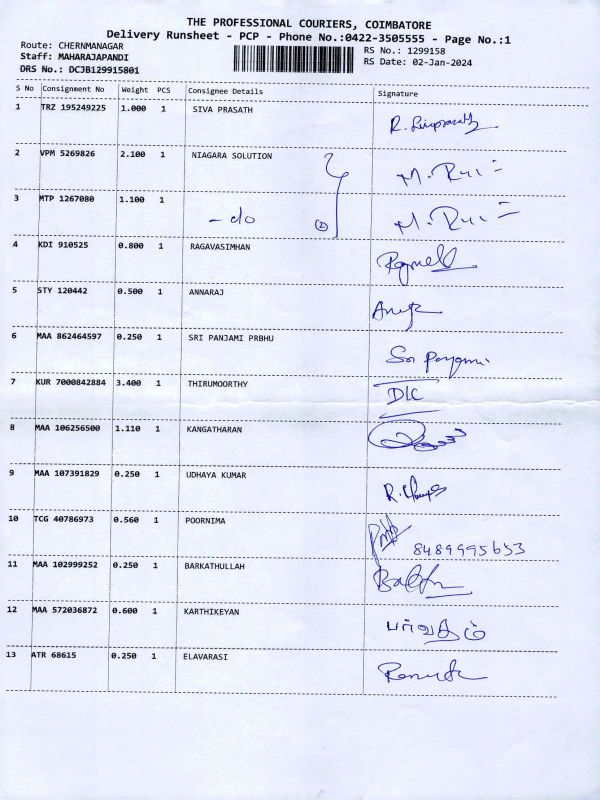 THE PROFESSIONAL COURIERS, COIMBATORE
Delivery Runsheet - PCP - Phone No.:0422-3505555 - Page No.:1
Route: CHERNMANAGAR
Staff: MAHARAJAPANDI
DRS No.: DCJB129915801
RS No.: 1299158
RS Date: 02-Jan-2024
S No Consignment No Weight PCS Consignee Details Signature
1 TRZ 195249225 1.000 1 SIVA PRASATH
2 VPM 5269826 2.100 1 NIAGARA SOLUTION
3 MTP 1267080 1.100 1 - do 2
4 KDI 910525 0.800 1 RAGAVASIMHAN
5 STY 120442 0.500 1 ANNARAJ
6 MAA 862464597 0.250 1 SRI PANJAMI PRBHU
7 KUR 7000842884 3.400 1 THIRUMOORTHY DLC
8 MAA 106256500 1.110 1 KANGATHARAN
9 MAA 107391829 0.250 1 UDHAYA KUMAR
10 TCG 40786973 0.560 1 POORNIMA 8489995653
11 MAA 102999252 0.250 1 BARKATHULLAH
12 MAA 572036872 0.600 1 KARTHIKEYAN பார்வதம்
13 ATR 68615 0.250 1 ELAVARASI